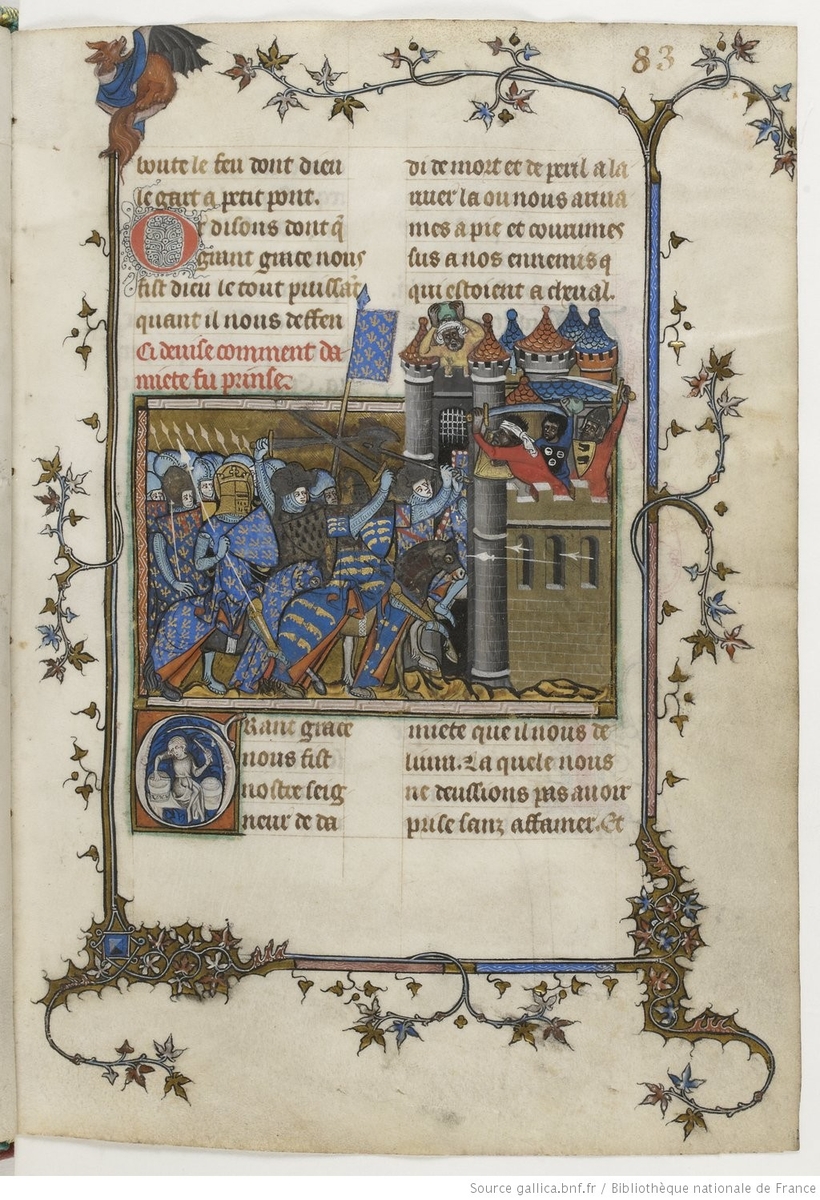 83
boute le feu dont dieu
le gart a petit pont.
Or disons dont q̃
grant grace nous
fist dieu le tout puissāt
quant il nous deffen
Ci devise comment da
miete fu prinse
di de mort et de peril a la
river la ou nous arriva
mes a pie et courumes
sus a nos ennemis q
qui estoient a cheval.
Grant grace
nous fist
nostre seig
neur de da
miete que il nous de
livra. La quele nous
ne deussions pas avoir
prise sanz affamer. Et
Source gallica.bnf.fr / Bibliothèque nationale de France